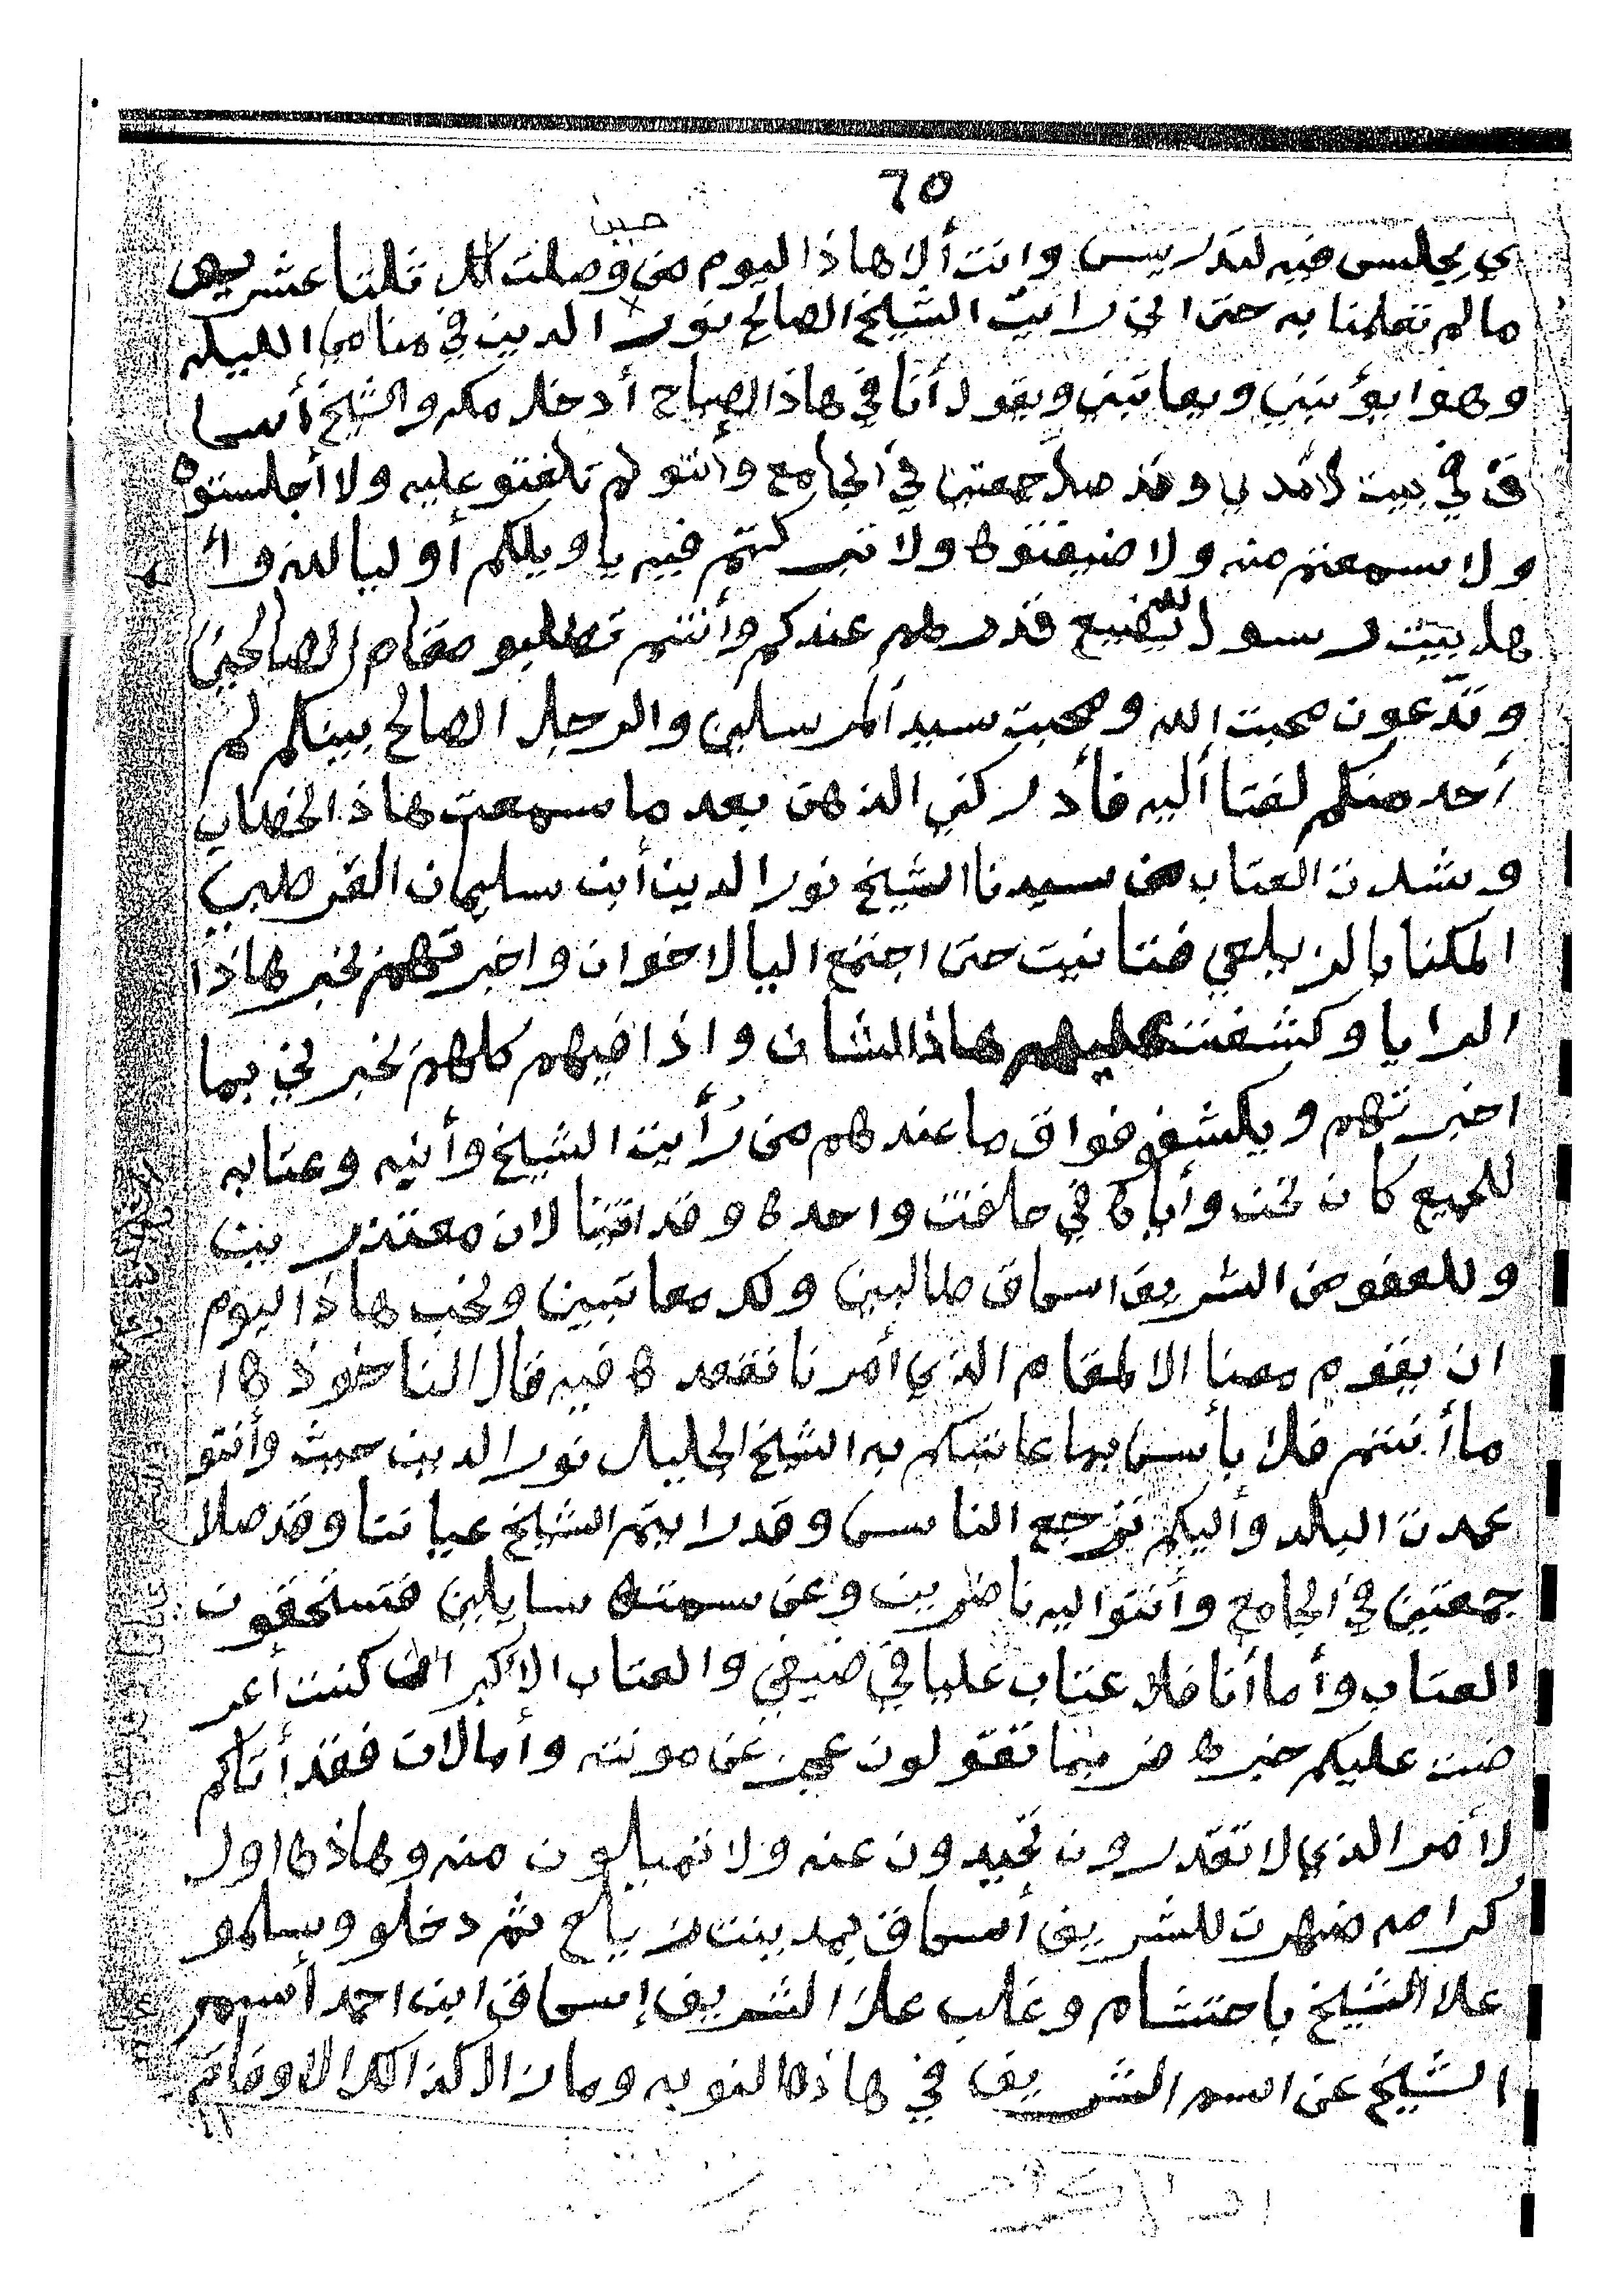 ٦٥
ي يجلس فيه لتدريس وانت ألا هاذا اليوم من وصلت لك ثلتا عشر يوم
ما لم تعلمنا به حتى اني رايت الشيخ الصالح نور الدين في منامي الليله
وهوا يؤنبني ويعاتبني ويقول أنا في هاذا الصباح أدخل مكه والشيخ أسحا
ق في بيت لأمدبي وقد صلا جمعتين في الجامع وأنتو لم تلفتو عليه ولا أجلستوه
ولا سمعتم منه ولا ضيفتوه ولا تبركتم فيه يا ويلكم أوليا لله وأ
هل بيت رسول يضيع قدرهم عندكم وأنتم تطلبو مقام الصالحين
وتدّعون محبت الله ومحبت سيد المرسلين والرجل الصالح بينكم لم
أحد منكم لفتا أليه فأدركني الذهن بعد ما سمعت هاذا الخطاب
وشدت العتاب من سيدنا الشيخ نور الدين أبن سليمان القرطبي
المكنا بالزيلعي فتانيت حتى اجتمع اليا لاخوان واخبرتهم بخبر هاذا
الرايا وكشفت عليهم هاذا الشان واذا فيهم كلهم يخبرني بما
اخبرتهم ويكشفو فواق ما عندهم من رأيت الشيخ وأنيه وعتابه
للجميع كان نحن وأياه في حلفت واحده وقد اتينا لان معتذرين
وللعفو من الشريف اسحاق طالبين وكلا معاتبين ونحب هاذا اليوم
ان يقوم معنا الا لمقام الذي أمرنا نقعده فيه قال الناخوذه ا
ما أنتم فلا بأس بما عاتبكم به الشيخ الجليل نور الدين حيث وأنتو
عمدت البلد وأليكم ترجع الناس وقد رايتم الشيخ عيانتا وقد صلا
جمعتين في الجامع وأنتو اليه ناضرين وعن سمته سايلين فتستحقون
العتاب وأما أنا فلا عتاب عليا في ضيفي والعتاب الاكبر ان كنت أعر
ضت عليكم خبره فربما تقولون عجز عن مونته وأما لان فقد أتاكم
لأمر الذي لا تقدرون تحيدون عنه ولا تميلون منه وهاذه اول
كرامه ضهرت للشريف أسحاق بمدينت زيلع ثم دخلو وسلمو
علا الشيخ باحتشام وغلب علا الشريف إسحاق ابن احمد أسم
الشيخ عن اسم الشريف في هاذه النوبه وما زال كذالك الا وفاته